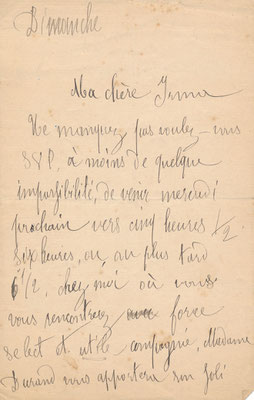 Dimanche
Ma chère Irma
Ne manquez pas voulez-vous
SVP. à moins de quelque
impossibilité, de venir mercredi
prochain vers cinq heures 1/2
six heures, ou, au plus tard
6 1/2, chez moi où vous
vous rencontrez force
select et utile compagnie, Madame
Durand vous apportera son joli